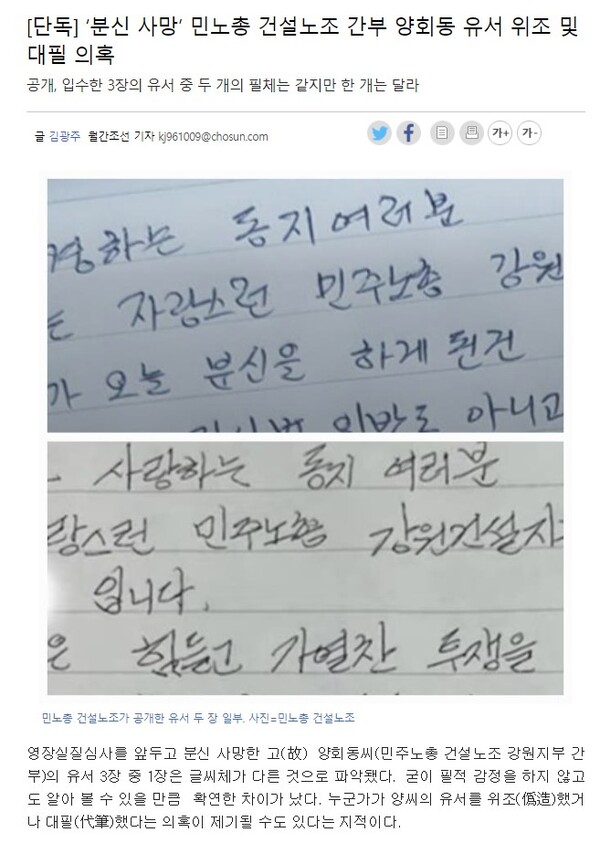 [단독] ‘분신 사망’ 민노총 건설노조 간부 양회동 유서 위조 및
대필 의혹
공개, 입수한 3장의 유서 중 두 개의 필체는 같지만 한 개는 달라
글 김광주 월간조선 기자 kj961009@chosun.com
가+ 가-
경하는 동지여러분
는 자랑스런 민주노총 강원
가 오늘 분신을 하게 된건
위반도 아니고
- 사랑하는 동지 여러분
랑스런 민주노총 강원건설지
입니다.
은 힘들고 가열찬 투쟁을
민노총 건설노조가 공개한 유서 두 장 일부. 사진=민노총 건설노조
영장실질심사를 앞두고 분신 사망한 고(故) 양회동씨(민주노총 건설노조 강원지부 간
부)의 유서 3장 중 1장은 글씨체가 다른 것으로 파악됐다. 굳이 필적 감정을 하지 않고
도 알아 볼 수 있을 만큼 확연한 차이가 났다. 누군가가 양씨의 유서를 위조(僞造)했거
나 대필(代筆)했다는 의혹이 제기될 수도 있다는 지적이다.